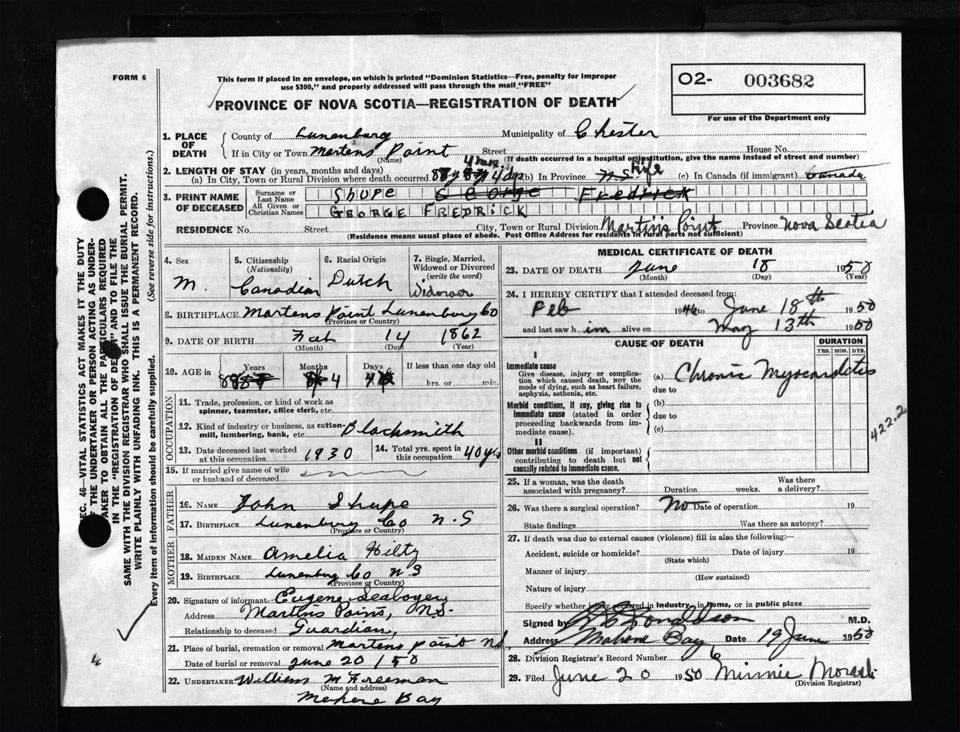 FORM 6
This form if placed in an envelope, on which is printed "Dominion Statistics—Free, penalty for improper
use $300," and properly addressed will pass through the mail "FREE"
O2- 003682
PROVINCE OF NOVA SCOTIA—REGISTRATION OF DEATH
For use of the Department only
1. PLACE OF DEATH
County of Lunenburg Municipality of Chester
If in City or Town Martens Point Street House No.
(Name) (If death occurred in a hospital or institution, give the name instead of street and number)
2. LENGTH OF STAY (in years, months and days)
(a) In City, Town or Rural Division where death occurred 88y 4 mos 4 dys (b) In Province N.S. life (c) In Canada (if immigrant) Canada
3. PRINT NAME OF DECEASED
Surname or Last Name Shupe George Fredrick
All Given or Christian Names GEORGE FREDRICK
RESIDENCE No. Street City, Town or Rural Division Martins Point Province Nova Scotia
(Residence means usual place of abode. Post Office Address for residents in rural parts not sufficient)
4. Sex M.
5. Citizenship (Nationality) Canadian
6. Racial Origin Dutch
7. Single, Married, Widowed or Divorced (write the word) Widower
8. BIRTHPLACE Martens Point Lunenburg Co
(Province or Country)
9. DATE OF BIRTH Feb 14 1862
(Month) (Day) (Year)
10. AGE in Years Months Days If less than one day old
88 4 4 hrs. or min.
OCCUPATION
11. Trade, profession, or kind of work as spinner, teamster, office clerk, etc.
12. Kind of industry or business, as cotton-mill, lumbering, bank, etc. Blacksmith
13. Date deceased last worked at this occupation 1930
14. Total yrs. spent in this occupation 40 yrs
15. If married give name of wife or husband of deceased
FATHER
16. NAME John Shupe
17. BIRTHPLACE Lunenburg Co N.S
(Province or Country)
MOTHER
18. MAIDEN NAME Amelia Hilty
19. BIRTHPLACE Lunenburg Co NS
(Province or Country)
20. Signature of informant Eugene Seaboyer
Address Martins Point, N.S.
Relationship to deceased Guardian,
21. Place of burial, cremation or removal Martens point NS.
Date of burial or removal June 20/50
22. UNDERTAKER William M Freeman
(Name and address)
Mehone Bay
MEDICAL CERTIFICATE OF DEATH
23. DATE OF DEATH June 18 1950
(Month) (Day)
24. I HEREBY CERTIFY that I attended deceased from:
Feb 1946 to June 18th 1950
and last saw him alive on May 13th 1950
CAUSE OF DEATH
DURATION
YRS. MOS. DYS.
I
Immediate cause
Give disease, injury or complication which caused death, not the mode of dying, such as heart failure, asphyxia, asthenia, etc.
(a) Chronic Myocarditis
due to
Morbid conditions, if any, giving rise to immediate cause (stated in order proceeding backwards from immediate cause).
(b)
due to
(c)
II
Other morbid conditions (if important) contributing to death but not causally related to immediate cause.
422.2
25. If a woman, was the death associated with pregnancy? Duration weeks. Was there a delivery?
26. Was there a surgical operation? No Date of operation 19
State findings Was there an autopsy?
27. If death was due to external causes (violence) fill in also the following:—
Accident, suicide or homicide? Date of injury 19
(State which)
Manner of injury
(How sustained)
Nature of injury
Specify whether injury occurred in industry, in home, or in public place
Signed by Donaldson M.D.
Address Mahone Bay Date 19 June 1950
28. Division Registrar's Record Number 6
29. Filed June 20 1950 Minnie
(Division Registrar)
SAME WITH THE DIVISION REGISTRAR WHO SHALL ISSUE THE BURIAL PERMIT.
WRITE PLAINLY WITH UNFADING INK. THIS IS A PERMANENT RECORD.
Every item of information should be carefully supplied. (See reverse side for instructions.)
4